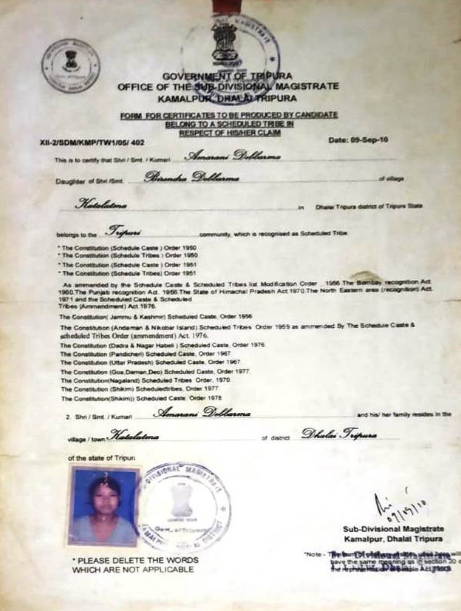 GOVERNMENT OF TRIPURA
OFFICE OF THE SUB-DIVISIONAL MAGISTRATE
KAMALPUR, DHALAI TRIPURA
FORM FOR CERTIFICATES TO BE PRODUCED BY CANDIDATE
BELONG TO A SCHEDULED TRIBE IN
RESPECT OF HIS/HER CLAIM
XII-2/SDM/KMP/TW1/05/ 402 Date: 09-Sep-10
This is to certify that Shri / Smt. / Kumari Amarani Debbarma
Daughter of Shri /Smt. Birendra Debbarma of village
Katalutma in Dhalai Tripura district of Tripura State
belongs to the Tripuri community, which is recognised as Scheduled Tribe.
* The Constitution (Schedule Caste ) Order 1950
* The Constitution (Schedule Tribes ) Order 1950
* The Constitution (Schedule Caste ) Order 1951
* The Constitution (Schedule Tribes) Order 1951
As ammended by the Schedule Caste & Scheduled Tribes list Modification Order , 1956 The Bombay recognition Act
1960,The Punjab recognition Act, 1956,The State of Himachal Pradesh Act 1970,The North Eastern area (recognition) Act.
1971 and the Scheduled Caste & Scheduled
Tribes (Ammendment) Act.1976.
The Constitution( Jammu & Kashmir) Scheduled Caste, Order 1956
The Constitution (Andaman & Nikobar Island) Scheduled Tribes Order 1959 as ammended By The Schedule Caste &
scheduled Tribes Order (ammendment) Act. 1976.
The Constitution (Dadra & Nagar Habeli ) Scheduled Caste, Order 1976.
The Constitution (Pandicheri) Scheduled Caste, Order 1967.
The Constitution (Uttar Pradesh) Scheduled Caste, Order 1967.
The Constitution (Goa,Daman,Deo) Scheduled Caste, Order 1977.
The Constitution(Nagaland) Scheduled Tribes Order, 1970.
The Constitution (Shikim) Scheduledtribes, Order 1977.
The Constitution(Shikim)) Scheduled Caste, Order 1978
2. Shri / Smt. / Kumari Amarani Debbarma and his/ her family resides in the
village / town Katalutma of district Dhalai Tripura
of the state of Tripuri
SUB-DIVISIONAL MAGISTRATE
Sub-Divisional Magistrate
Kamalpur, Dhalai Tripura
* PLEASE DELETE THE WORDS
WHICH ARE NOT APPLICABLE
*Note -
have the same meaning as in section 20